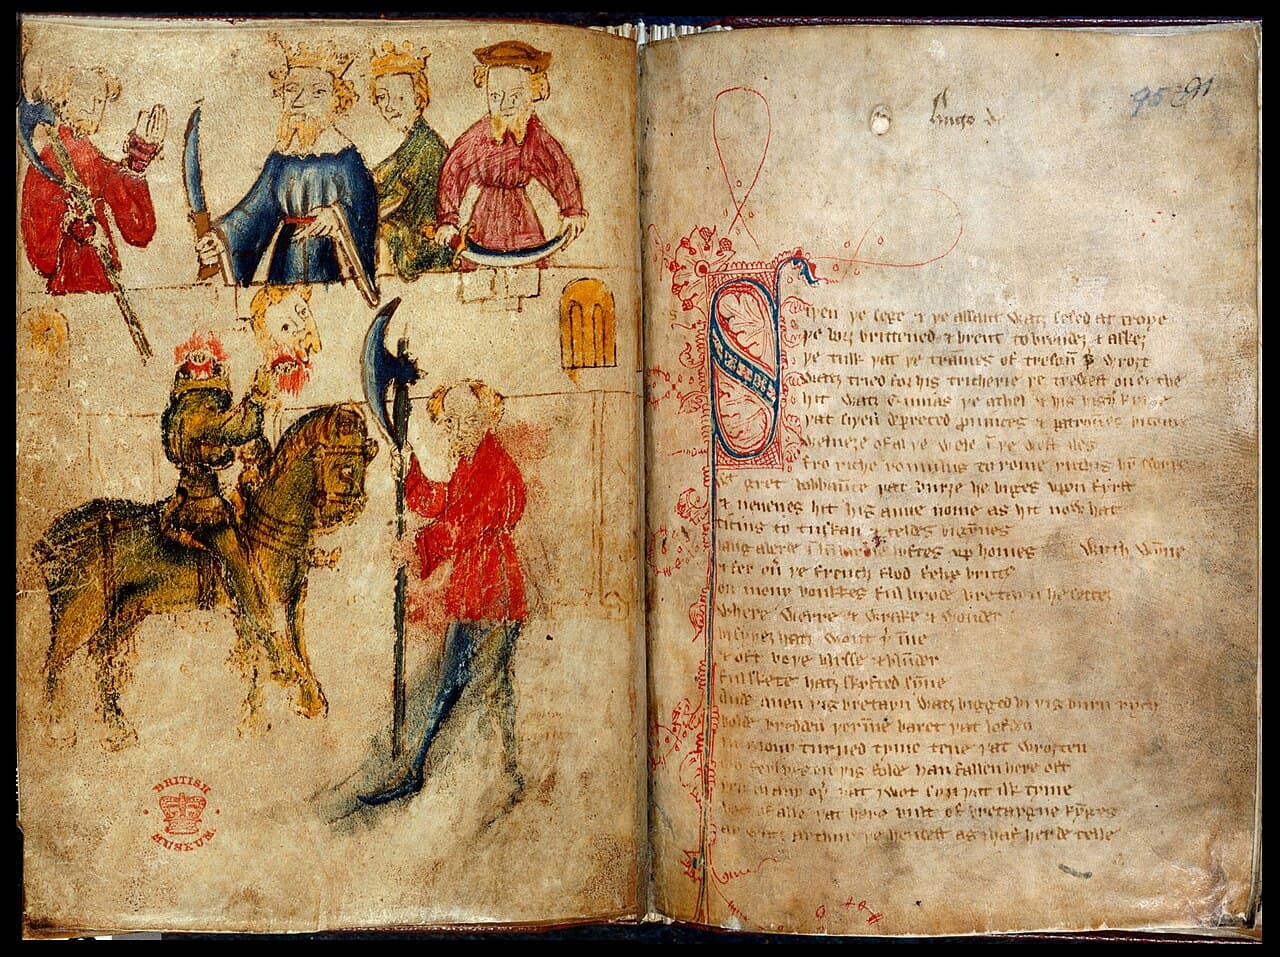 BRITISH
MUSEUM
Hugo de
95 91
Siþen þe sege & þe assaut watz sesed at troye
þe borȝ brittened & brent to brondeȝ & askez
þe tulk þat þe trammes of tresoū þ̄ wroȝt
watz tried for his tricherie þe trewest on erthe
hit watz Ennias þe athel & his highe kynde
þat siþen depreced prouinces & patrounes bicome
welneȝe of al þe wele ī þe west iles
fro riche romulus to rome ricchis hȳ swyþe
gret bobbaūce þat burȝe he biges vpon fyrst
& neuenes hit his aune nome as hit now hat
ticius to tuskan & teldes bigȳnes
langaberde ī lumbardie lyftes vp homes wyth wȳne
& fer oū þe french flod felix brutus
on mony bonkkes ful brode bretayn he settez
where werre & wrake & wonder
bi syþez hatz wont þ̄ īne
& oft boþe blysse & blūder
ful skete hatz skyfted sȳne
Ande quen þis bretayn watz bigged bi þis burn rych
bolde bredden þerīne baret þat lofden
in mony turned tyme tene þat wroȝten
mo ferlyes on þis folde han fallen here oft
þen in any oþ̄ þat I wot syn þat ilk tyme
bot of alle þat here bult of bretaygne kȳges
ay watz arthur þe hendest as I haf herde telle